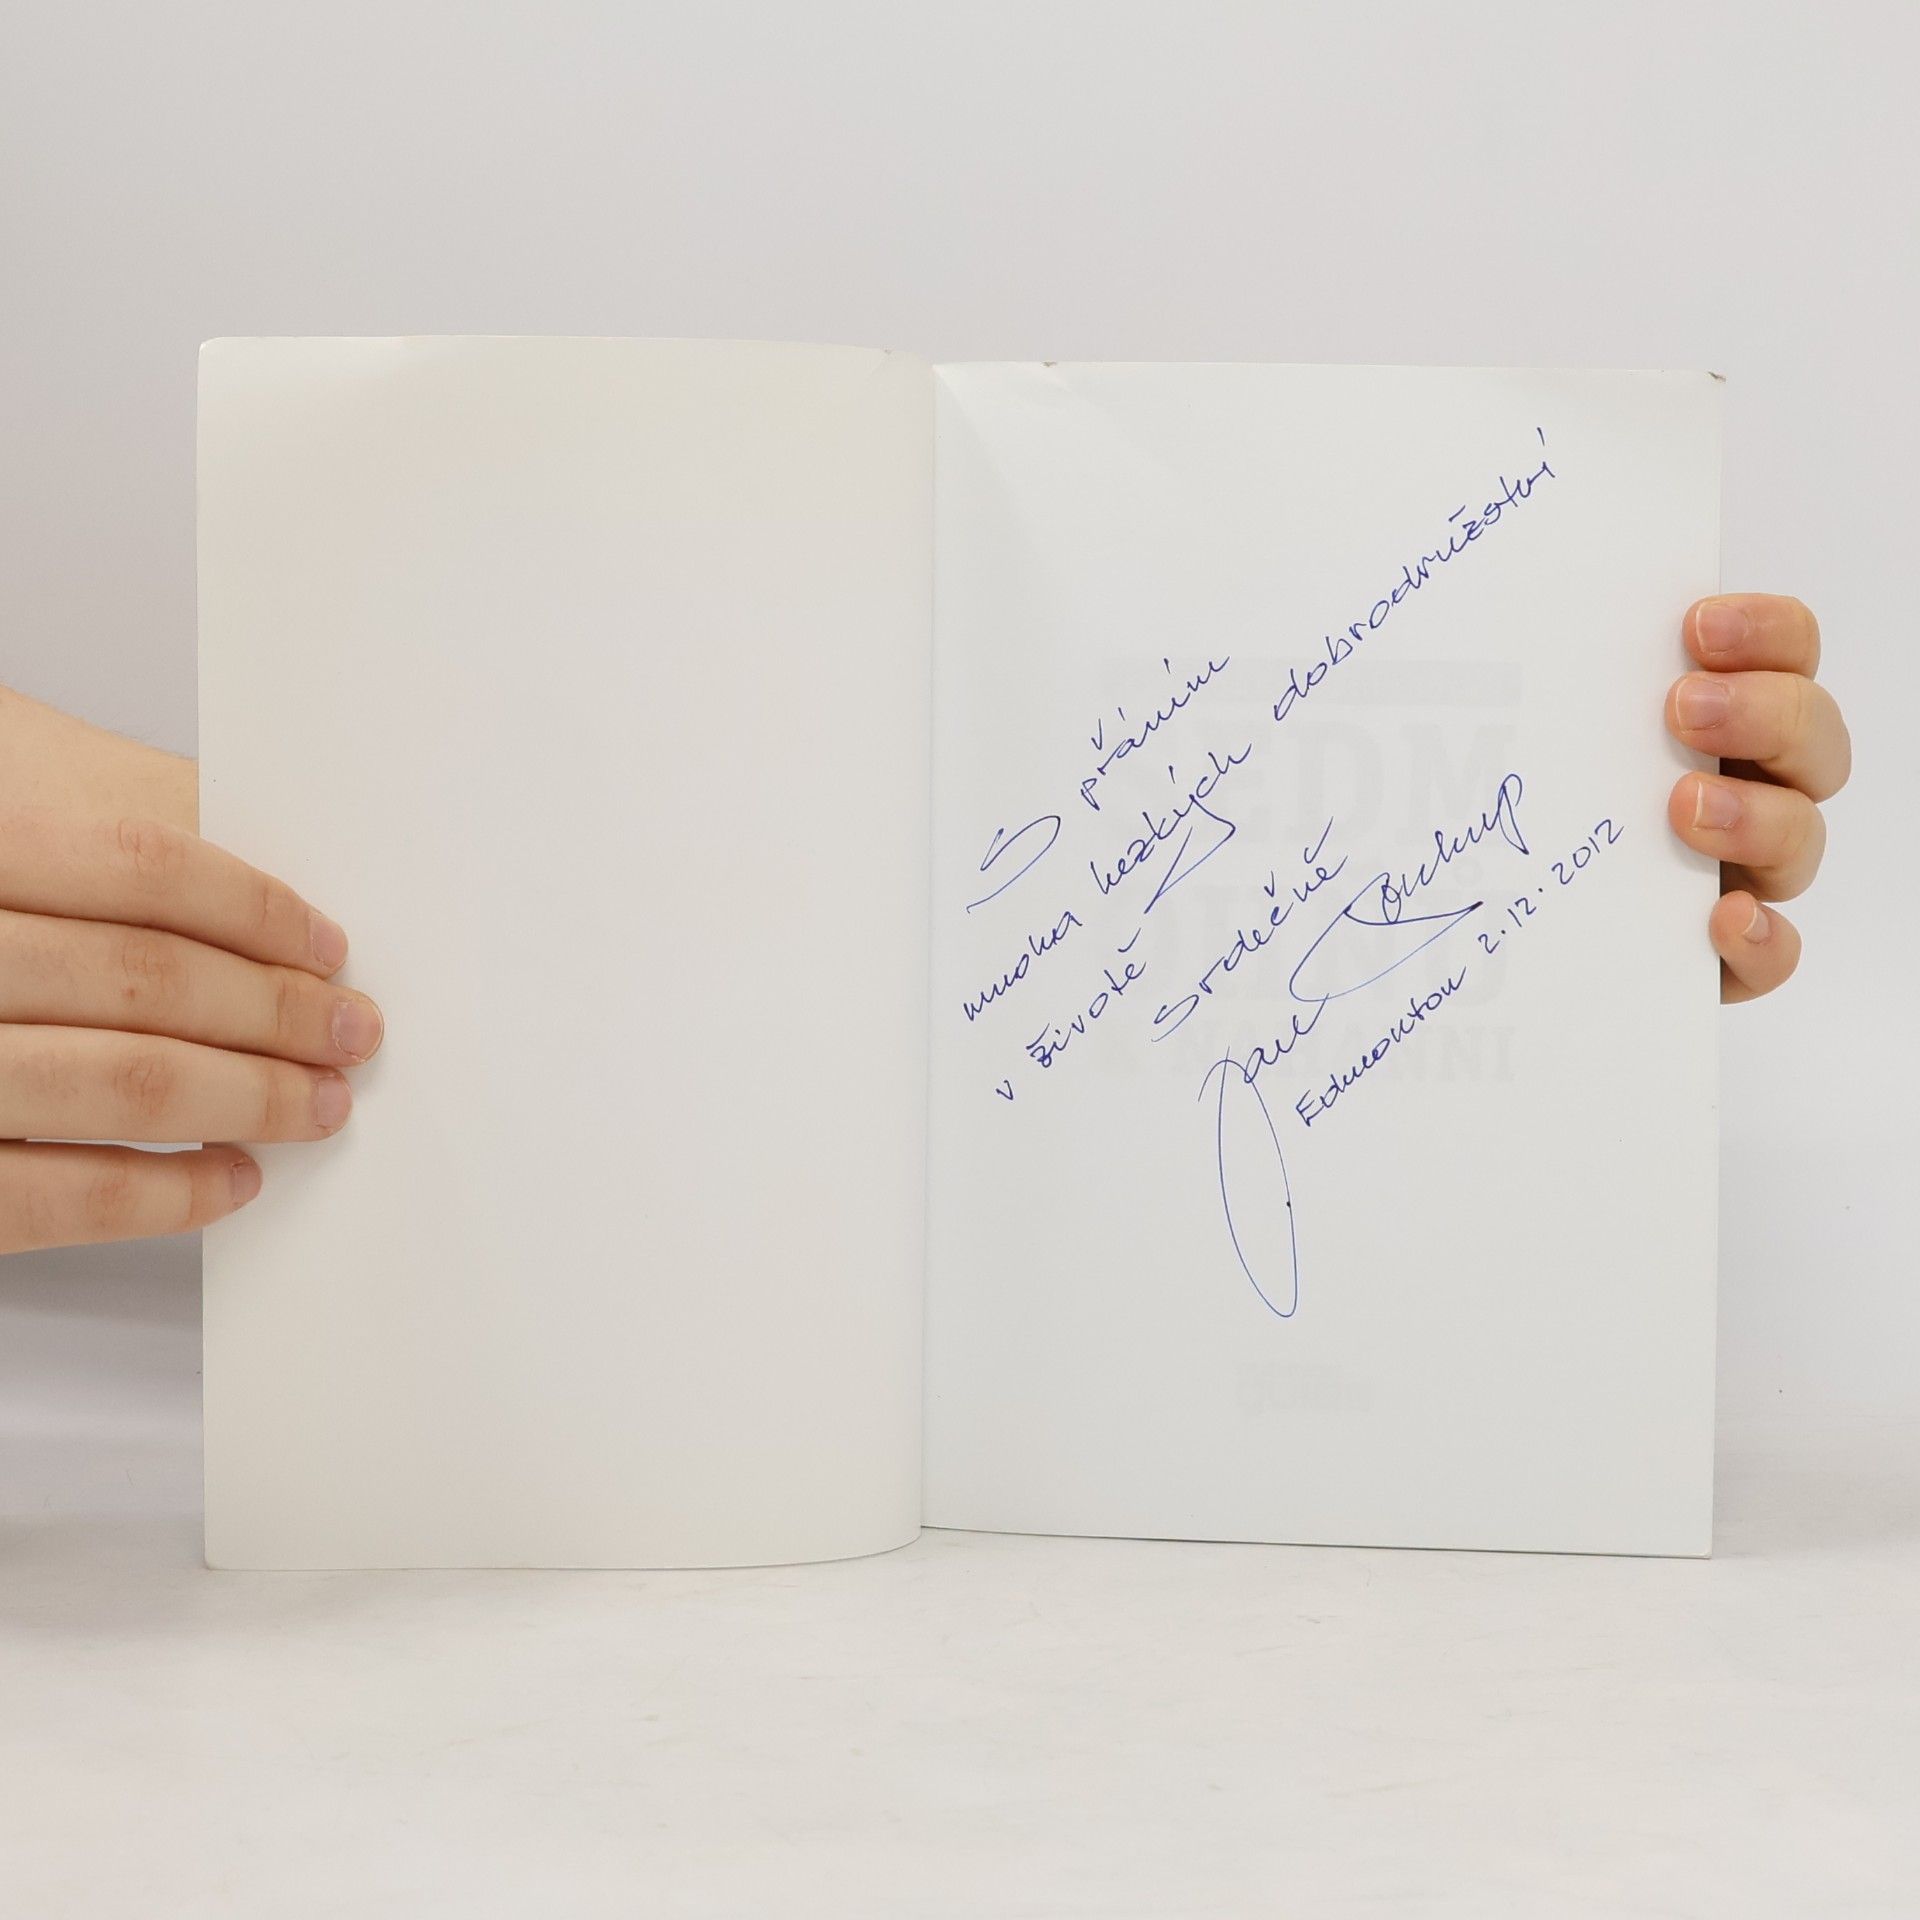 S přáním
mnoha hezkých dobrodružství
v životě
Srdečně
Jan Soukup
Edmonton 2.12.2012